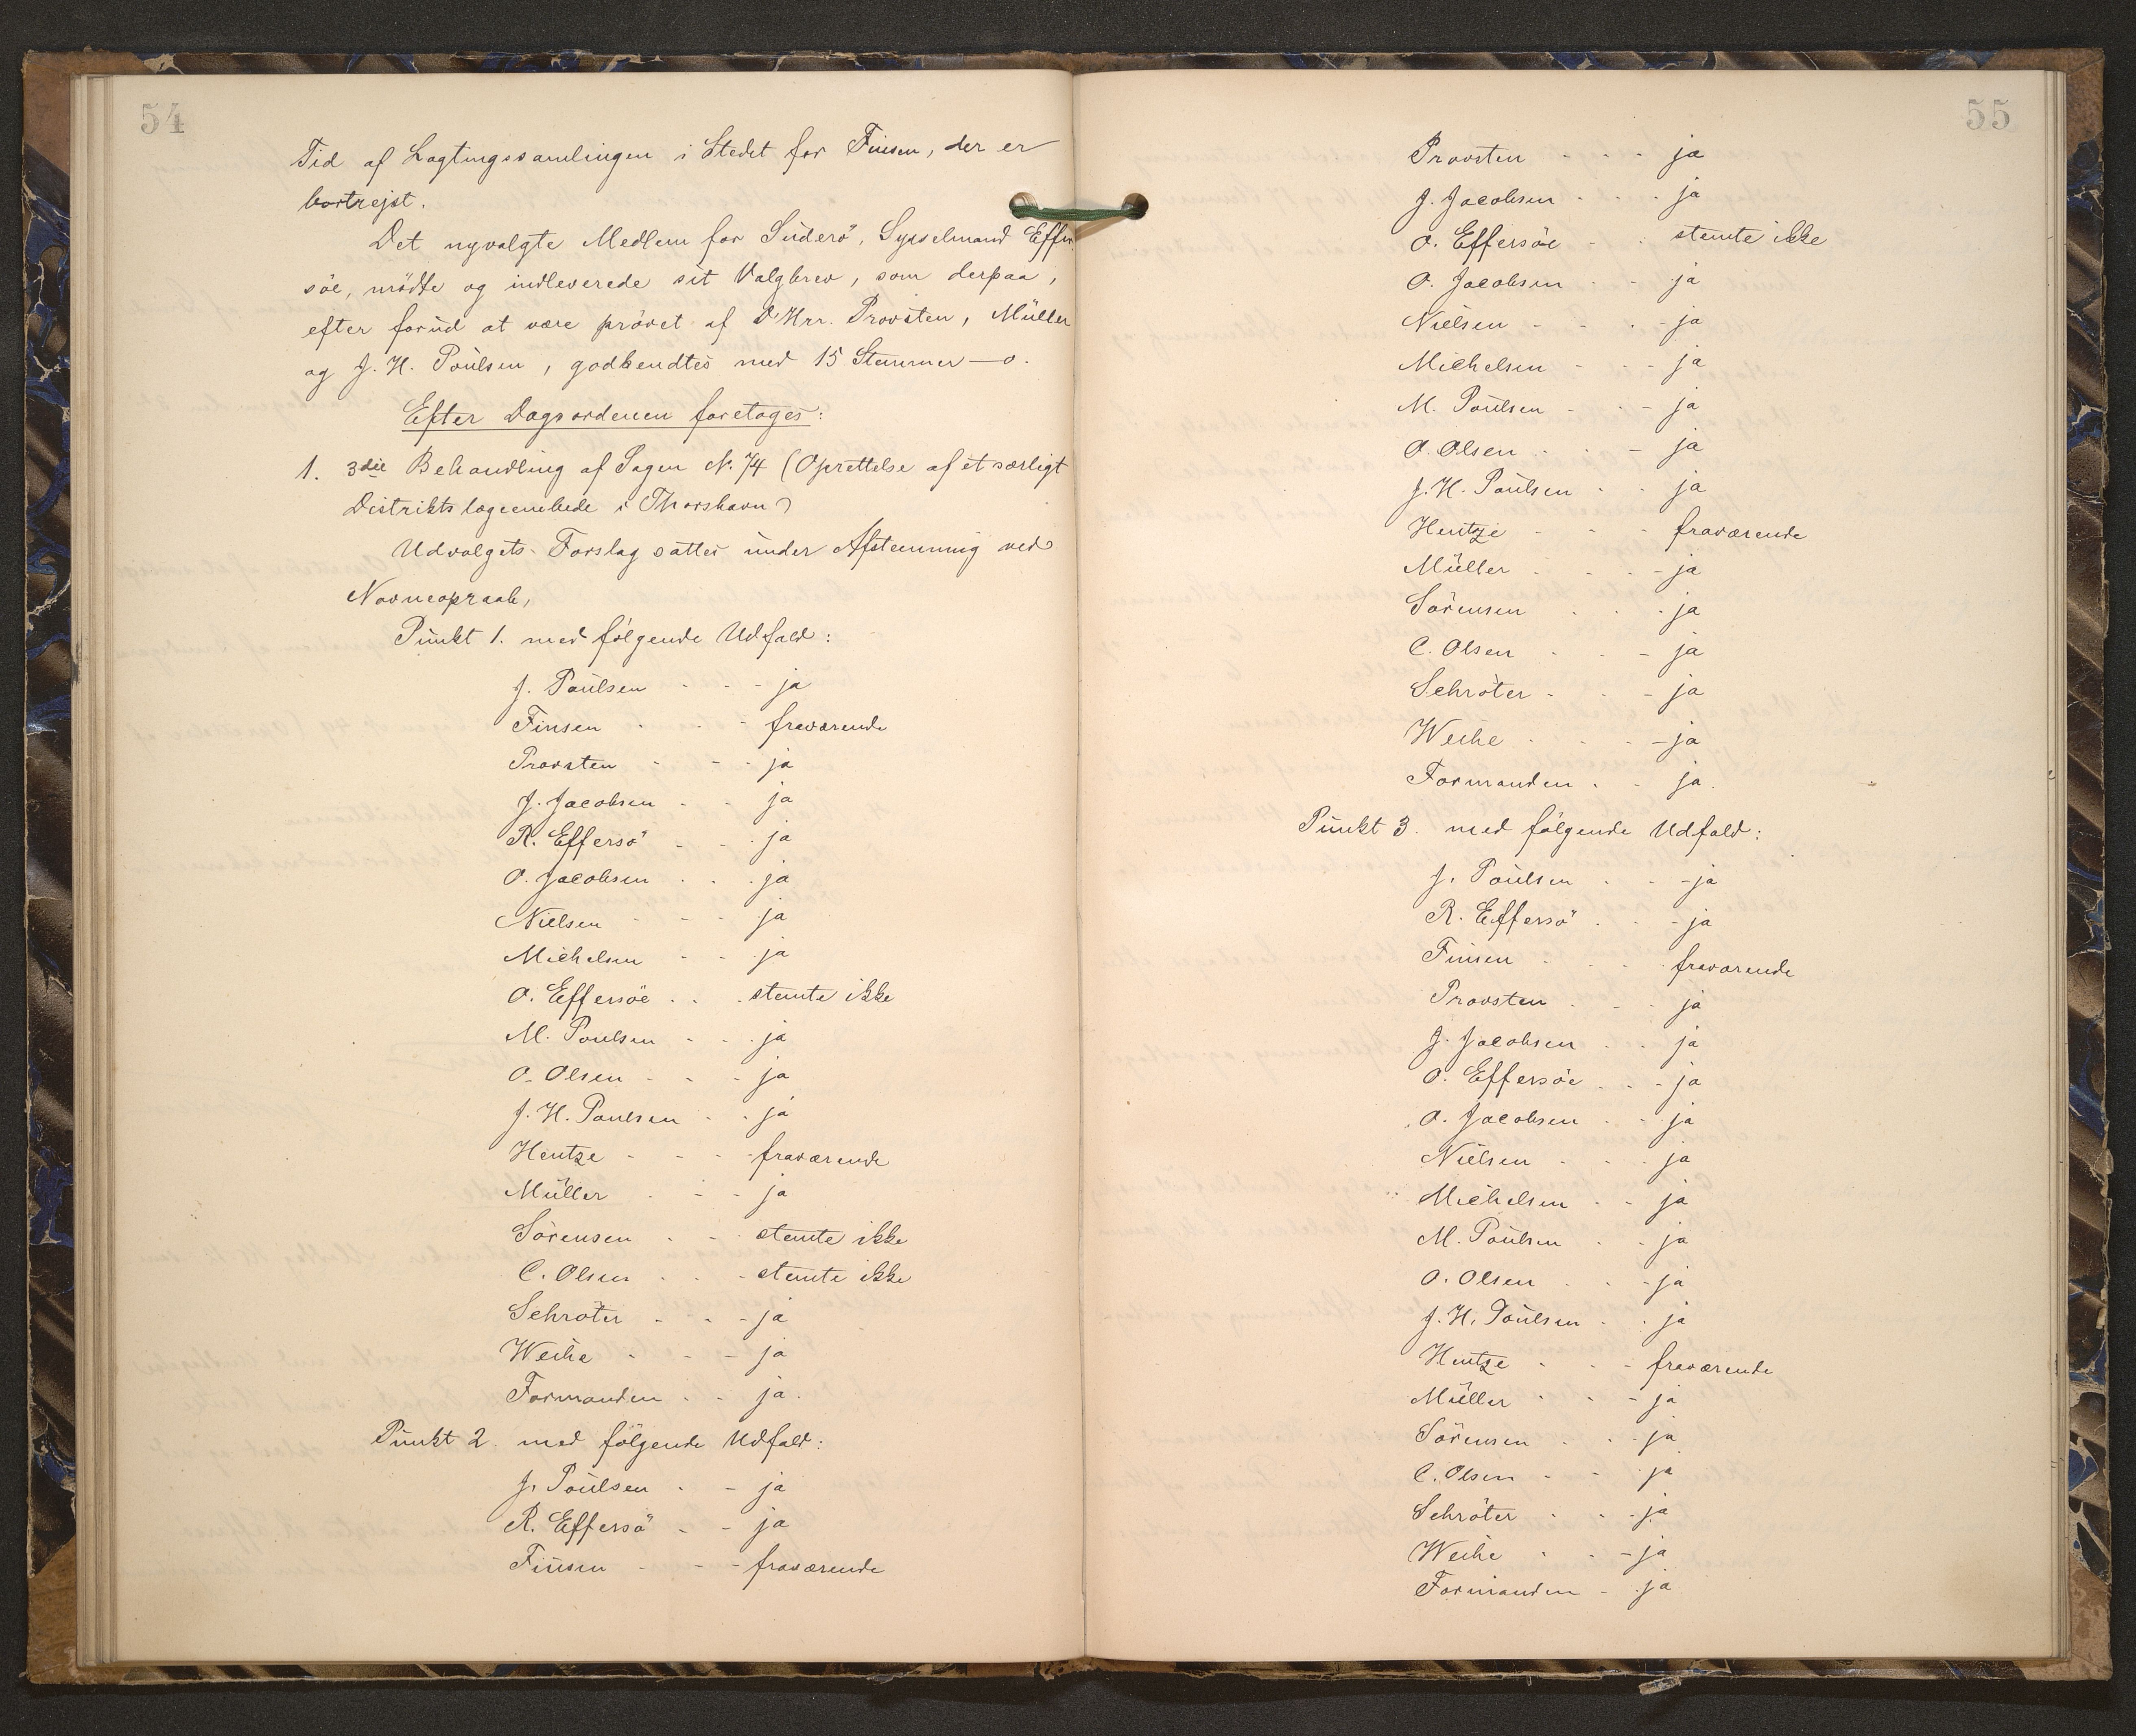 54
Tid af Lagtingssamlingen i Stedet for Finsen, der er
bortrejst.
Det nyvalgte Medlem for Suderö, Sysselmand Effer
söe, mödte og indleverede sit Valgbrev, som derpaa,
efter forud at være prövet af D'Hrr. Provsten, Müller
og J. H. Poulsen, godkendtes med 15 Stemmer — o.
Efter Dagsordenen foretoges:
1. 3die Behandling af Sagen N. 74 (Oprettelse af et særligt
Distriktslægeembede i Thorshavn)
Udvalgets Forslag sattes under Afstemning ved
Navneopraab,
Punkt 1. med fölgende Udfald:
J. Poulsen - - - ja
Finsen - - - fraværende
Provsten - - - ja
J. Jacobsen - - ja
R. Effersö - - - ja
O. Jacobsen - - - ja
Nielsen - - - ja
Michelsen - - - ja
O. Effersöe - - - stemte ikke
M. Poulsen - - - ja
O. Olsen - - - ja
J. H. Poulsen - - ja
Hentze - - - - fraværende
Müller - - - ja
Sörensen - - - stemte ikke
C. Olsen - - - stemte ikke
Schröter - - - ja
Weihe - - - ja
Formanden - - ja.
Punkt 2. med fölgende Udfald:
J. Poulsen - - ja
R. Effersö - - ja
Finsen - - - fraværende
55
Provsten - - - ja
J. Jacobsen - - - ja
O. Effersöe - - stemte ikke
O. Jacobsen - - ja
Nielsen - - - ja
Michelsen - - - ja
M. Poulsen - - - ja
O. Olsen - - - ja
J. H. Poulsen - - ja
Hentze - - - fraværende
Müller - - - ja
Sörensen - - - ja
C. Olsen - - - ja
Schröter - - - ja
Weihe - - - ja
Formanden - - ja.
Punkt 3. med fölgende Udfald:
J. Poulsen - - - ja
R. Effersö - - - ja
Finsen - - - fraværende
Provsten - - - ja
J. Jacobsen - - ja
O. Effersöe - - - ja
O. Jacobsen - - ja
Nielsen - - - ja
Michelsen - - ja
M. Poulsen - - ja
O. Olsen - - - ja
J. H. Poulsen - - ja
Hentze - - - fraværende
Müller - - - ja
Sörensen - - - ja
C. Olsen - - ja
Schröter - - - ja
Weihe - - - ja
Formanden - - ja